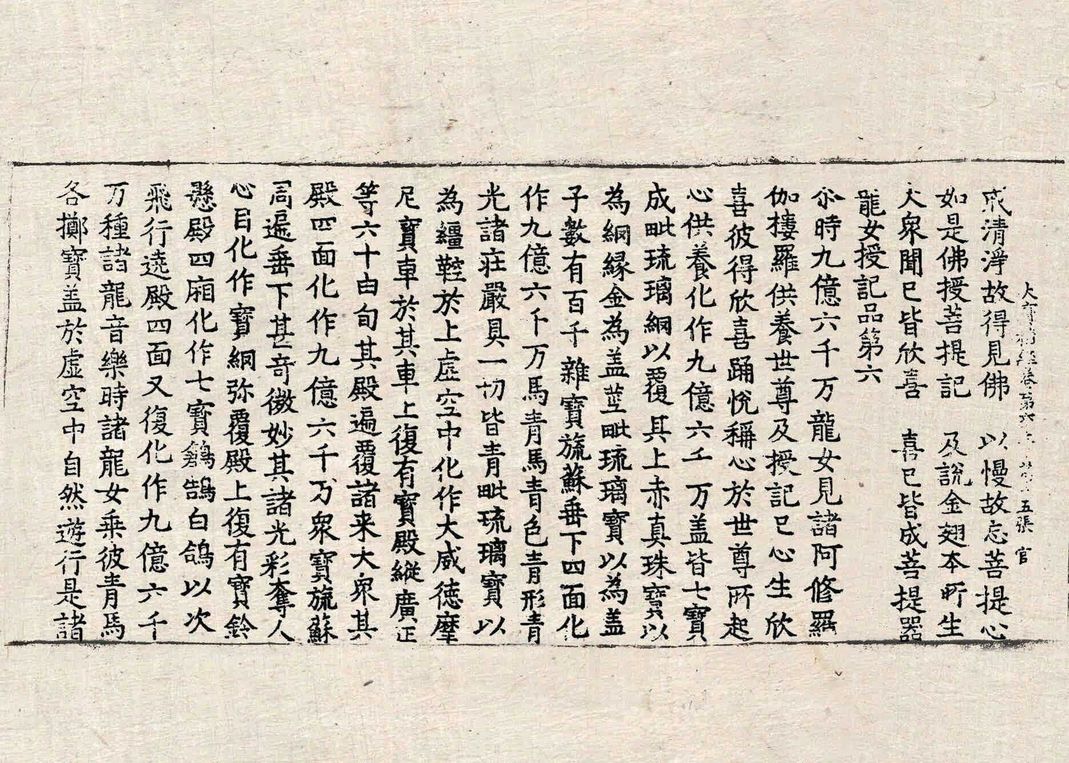 戒清淨故得見佛　以慢故忘菩提心
如是佛授菩提記　及說金翅本所生
大衆聞已皆欣喜　喜已皆成菩提器
龍女授記品第六
尒時九億六千万龍女見諸阿修羅
伽樓羅供養世尊及授記已心生欣
喜彼得欣喜踊悅稱心於世尊所起
心供養化作九億六千万盖皆七寶
成毗琉璃網以覆其上赤真珠寶以
為網緣金為盖莖毗琉璃寶以為盖
子數有百千雜寶旒蘇垂下四面化
作九億六千万馬青馬青色青形青
光諸莊嚴具一切皆青毗琉璃寶以
為繮鞚於上虛空中化作大威德摩
尼寶車於其車上復有寶殿縱廣正
等六十由旬其殿遍覆諸来大衆其
殿四面化作九億六千万衆寶旒蘇
周遍垂下甚奇微妙其諸光彩奪人
心目化作寶網弥覆殿上復有寶鈴
懸殿四廂化作七寶鶬鵠白鴿以次
飛行遶殿四面又復化作九億六千
万種諸龍音樂時諸龍女乘彼青馬
各擲寶盖於虛空中自然遊行是諸
五張 官